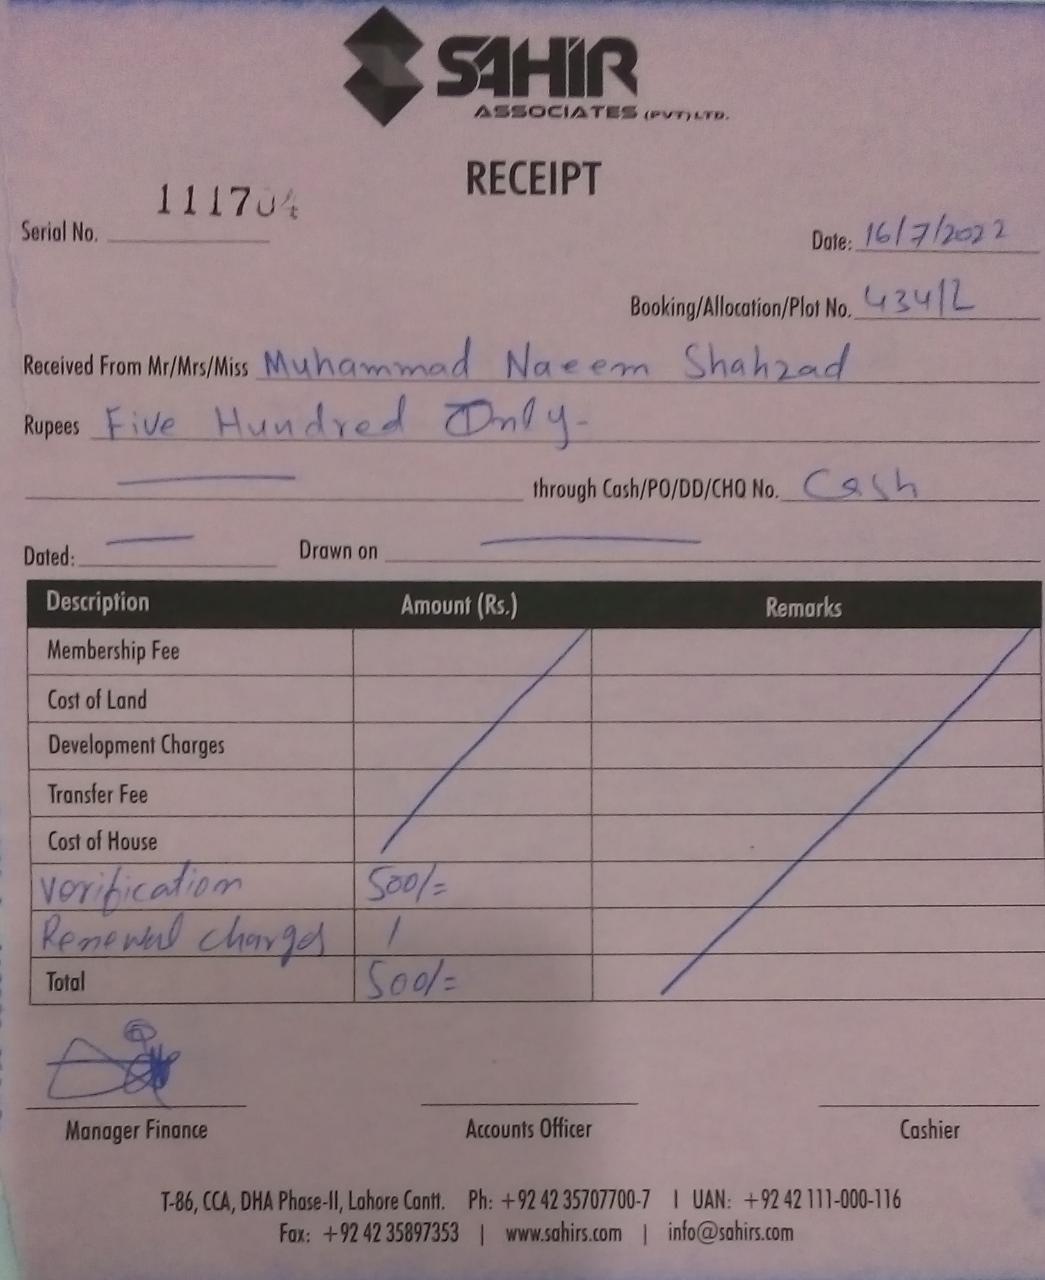 SAHIR
ASSOCIATES (PVT) LTD.
RECEIPT
Serial No. 111704
Date: 16/7/2022
Booking/Allocation/Plot No. 434/L
Received From Mr/Mrs/Miss Muhammad Naeem Shahzad
Rupees Five Hundred Only-
through Cash/PO/DD/CHQ No. Cash
Dated: Drawn on
Description Amount (Rs.) Remarks
Membership Fee
Cost of Land
Development Charges
Transfer Fee
Cost of House
Verification 500/=
Renewal charges /
Total 500/=
Manager Finance Accounts Officer Cashier
T-86, CCA, DHA Phase-II, Lahore Cantt. Ph: +92 42 35707700-7 | UAN: +92 42 111-000-116
Fax: +92 42 35897353 | www.sahirs.com | info@sahirs.com